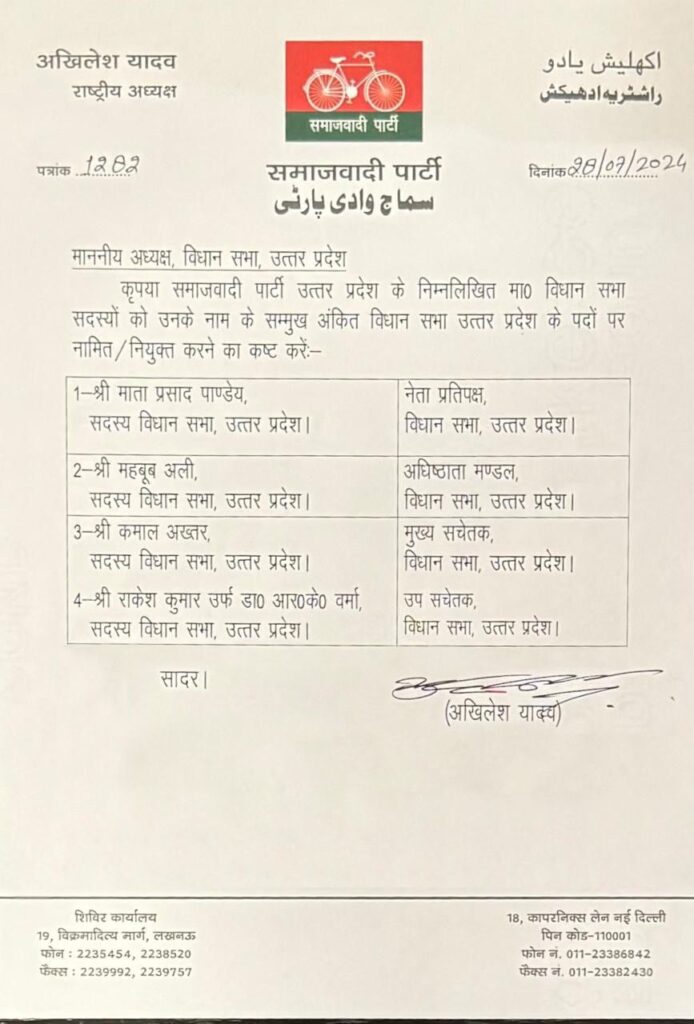 अखिलेश यादव
राष्ट्रीय अध्यक्ष
समाजवादी पार्टी
اکھلیش یادو
راشٹریہ ادھیکش
पत्रांक 1282
समाजवादी पार्टी
سماج وادی پارٹی
दिनांक 28/07/2024
माननीय अध्यक्ष, विधान सभा, उत्तर प्रदेश
कृपया समाजवादी पार्टी उत्तर प्रदेश के निम्नलिखित मा0 विधान सभा
सदस्यों को उनके नाम के सम्मुख अंकित विधान सभा उत्तर प्रदेश के पदों पर
नामित/नियुक्त करने का कष्ट करेंः–
1–श्री माता प्रसाद पाण्डेय,
सदस्य विधान सभा, उत्तर प्रदेश।
नेता प्रतिपक्ष,
विधान सभा, उत्तर प्रदेश।
2–श्री महबूब अली,
सदस्य विधान सभा, उत्तर प्रदेश।
अधिष्ठाता मण्डल,
विधान सभा, उत्तर प्रदेश।
3–श्री कमाल अख्तर,
सदस्य विधान सभा, उत्तर प्रदेश।
मुख्य सचेतक,
विधान सभा, उत्तर प्रदेश।
4–श्री राकेश कुमार उर्फ डा0 आर0के0 वर्मा,
सदस्य विधान सभा, उत्तर प्रदेश।
उप सचेतक,
विधान सभा, उत्तर प्रदेश।
सादर।
(अखिलेश यादव)
शिविर कार्यालय
19, विक्रमादित्य मार्ग, लखनऊ
फोन : 2235454, 2238520
फैक्स : 2239992, 2239757
18, कापरनिक्स लेन नई दिल्ली
पिन कोड–110001
फोन नं. 011–23386842
फैक्स नं. 011–23382430